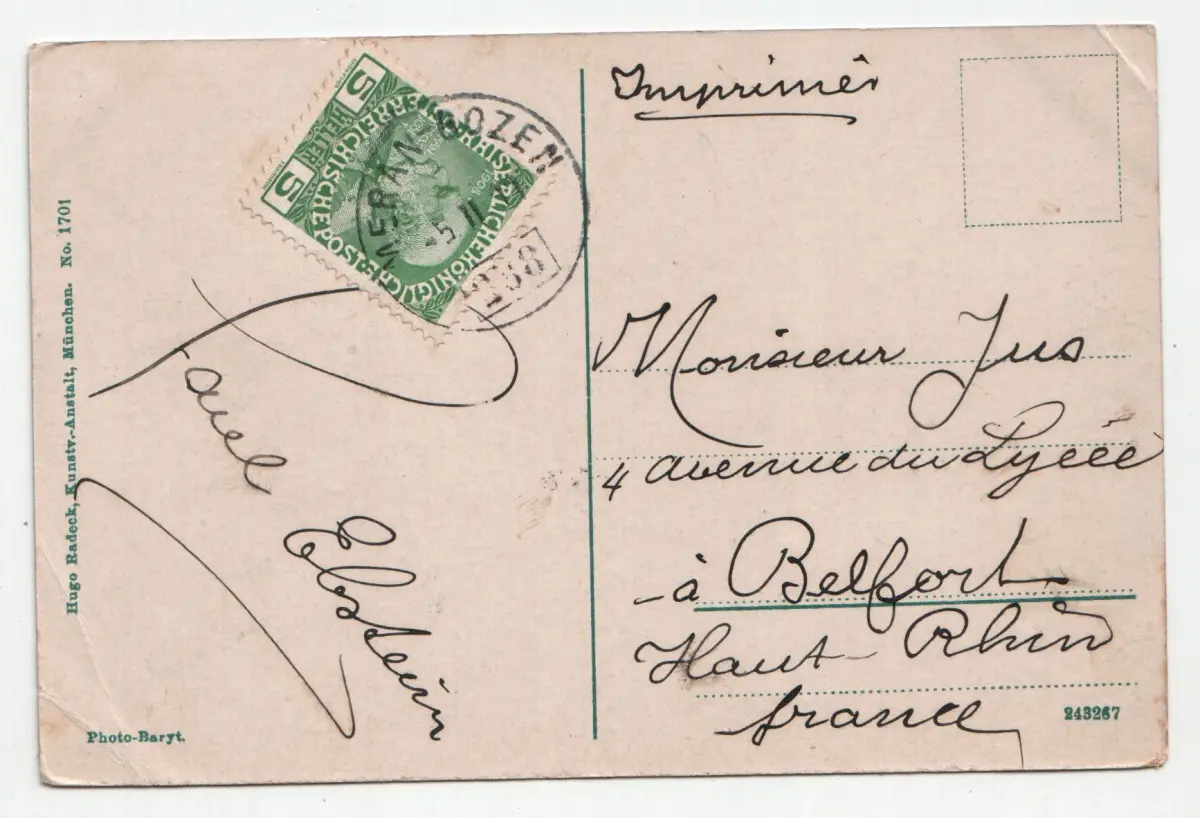 Hugo Radeck, Kunstv.-Anstalt, München. No. 1701
5 HELLER 5
KAISERLICHE KÖNIGLICHE POST
ÖSTERREICHISCHE
1908
MERAN BOZEN
5 II
238
Paul
Ebstein
Photo-Baryt.
Imprimés
Monsieur Jus
4 avenue du Lycée
à Belfort
Haut-Rhin
france
243267